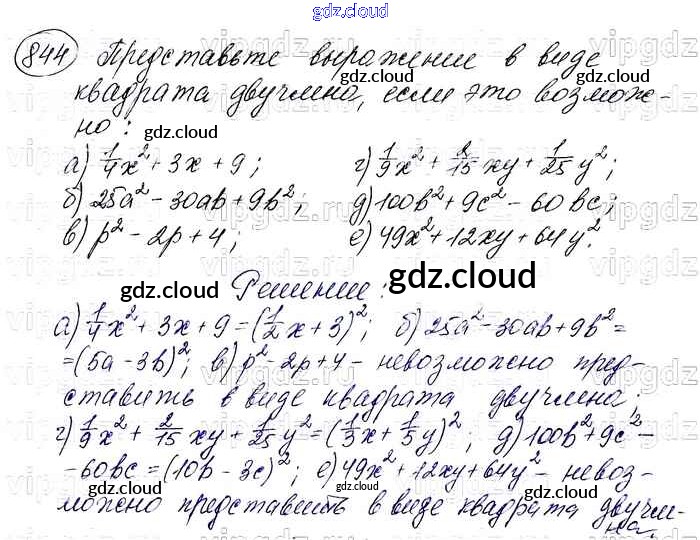 gdz.cloud
844 Представьте выражение в виде
квадрата двучлена, если это возмож-
но:
а) 1/4x² + 3x + 9; г) 1/9x² + 2/15xy + 1/25y²;
б) 25a² - 30ab + 9b²; д) 100b² + 9c² - 60bc;
в) p² - 2p + 4; е) 49x² + 12xy + 64y².
Решение:
а) 1/4x² + 3x + 9 = (1/2x + 3)²; б) 25a² - 30ab + 9b² =
= (5a - 3b)²; в) p² - 2p + 4 - невозможно пред-
ставить в виде квадрата двучлена;
г) 1/9x² + 2/15xy + 1/25y² = (1/3x + 1/5y)²; д) 100b² + 9c² -
- 60bc = (10b - 3c)²; е) 49x² + 12xy + 64y² - невоз-
можно представить в виде квадрата двучле-
на.